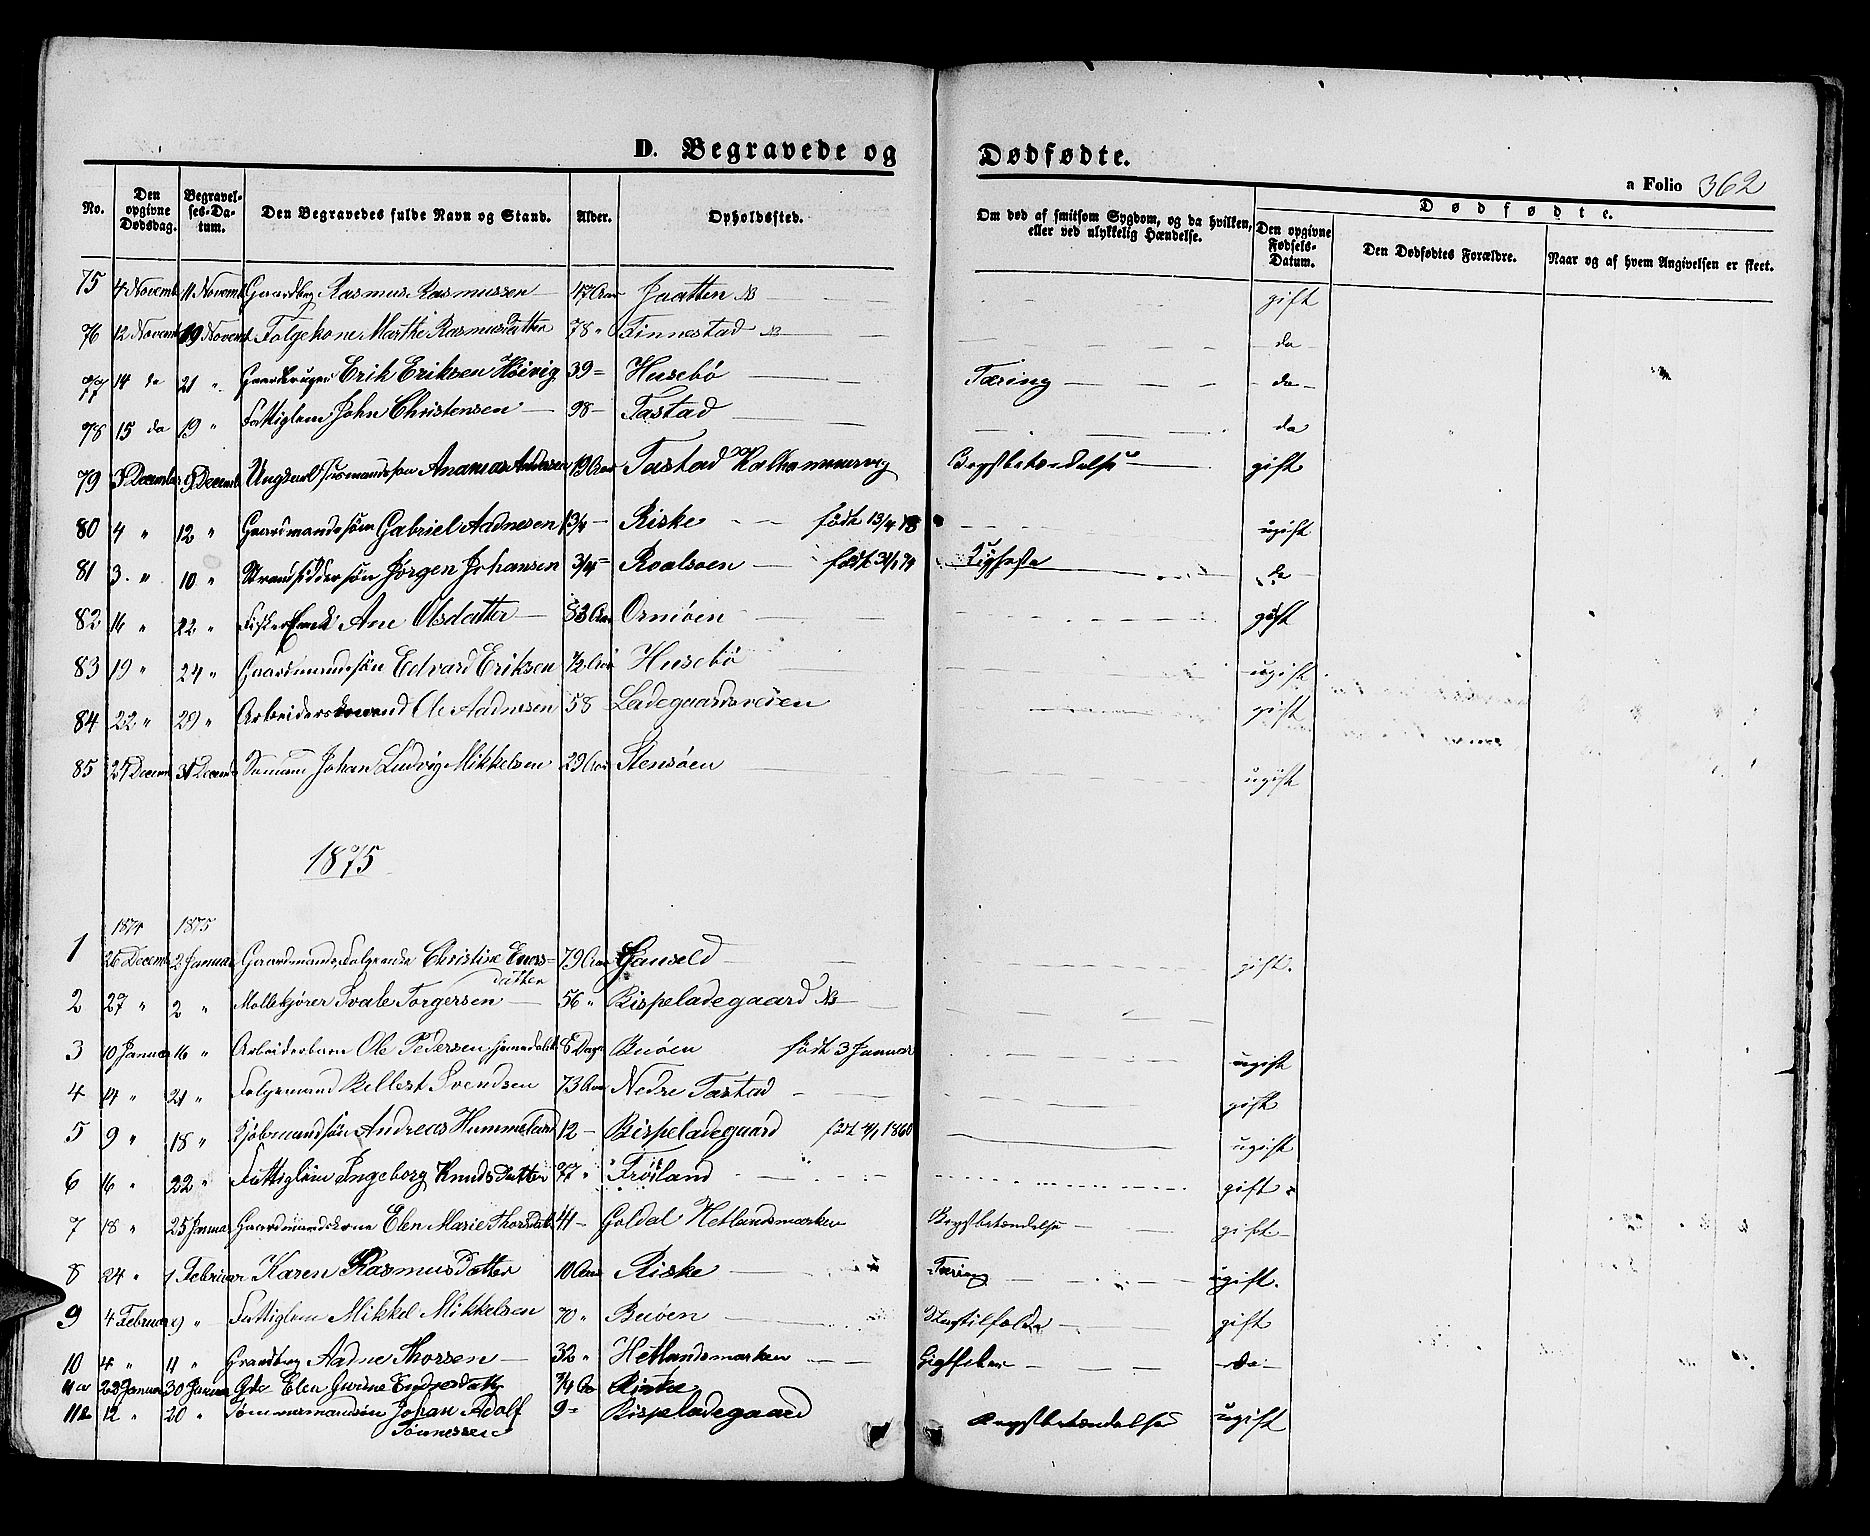 D. Begravede og Dødfødte.
a Folio 362
No. Den opgivne Dødsdag. Begravelses-Datum. Den Begravedes fulde Navn og Stand. Alder. Opholdssted. Om død af smitsom Sygdom, og da hvilken, eller ved ulykkelig Hændelse. Dødfødte. Den opgivne Fødsels-Datum. Den Dødfødtes Forældre. Naar og af hvem Angivelsen er skeet.
75 4 Novemb 11 Novemb Gaardbrg Rasmus Rasmussen 47 Aar Jaatten gift
76 12 Novemb 19 Novemb Folgekone Marthe Rasmusdatter 78 " Finnestad da
77 14 do 21 " Erik Eriksen Höivig 39 Husebö Tæring da
78 15 do 19 " Fattiglem John Christensen 98 Tastad da
79 Decemb Decemb Ungkarl Ananias Andersen 19 Aar Tastad Kalhammervig Brystbetændelse gift
80 4 " 12 " Gaardmandssön Gabriel Aadnesen 1 3/4 Riske födt 13/4 73 ugift
81 3 " 10 " Strandsiddersön Jörgen Johansen 3/4 Roalsoen do
82 16 " 22 " Fisker Enke Ane Olsdatter 83 Aar Ormöen gift
83 19 " 24 " Gaardmandssön Edvard Eriksen 1/2 Aar Husebö ugift
84 22 " 29 " Arbeidersmand Ole Aadnesen 58 Ladegaardsveien gift
85 27 Decemb 31 Decemb Sömand Johan Ludvig Mikkelsen 29 Aar Stensöen ugift
1875
1874 1875
1 26 Decemb 2 Januar Christine Enersdatter 79 Aar Gauseld gift
2 27 " 2 " Mollekjörer Svale Torgersen 56 " Bispeladegaard
3 10 Januar 16 " Arbeiderbarn Ole Pedersen 8 Dage Buöen födt 3 Januar ugift
4 14 " 21 " Folgemand Bellest Svendsen 73 Aar Nedre Tastad gift
5 9 " 18 " Andreas Hummeland 12 Bispeladegaard födt 4/1 1860 ugift
6 16 " 22 " Fattiglem Ingeborg Knudsdatter 77 " Fröiland gift
7 18 " 25 Januar Gaardmandskone Elen Marie Thorsdatt 41 Goldal Hetlandsmarken Brystbetændelse gift
8 24 " 1 Februar Karen Rasmusdatter 10 Aar Riske Tæring ugift
9 4 Februar 9 " Fattiglem Mikkel Mikkelsen 70 " Buöen gift
10 4 " 11 " Gaardbrg Aadne Thorsen 32 " Hetlandsmarken Gigtfeber da
11a 23 Januar 30 Januar Elen Gurine Endresdatt 3/4 Aar Riske
11b 12 " 20 " Tömmermandssön Johan Adolf Tönnessen 9 Bispeladegaard Brystbetændelse ugift